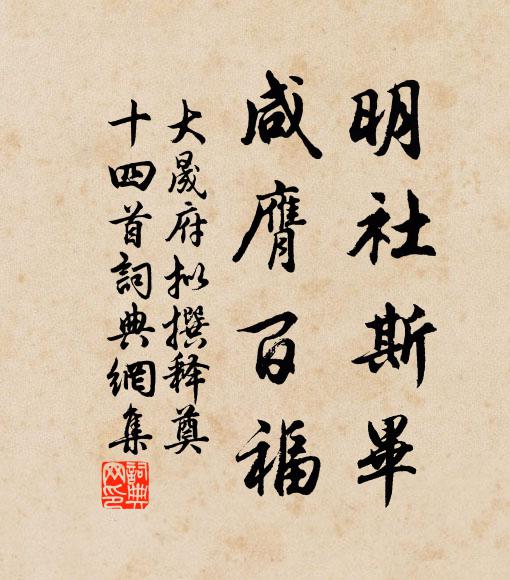 明社斯畢
咸膺百福
大晟府拟撰释奠
十四首詞典網集
詞典网印